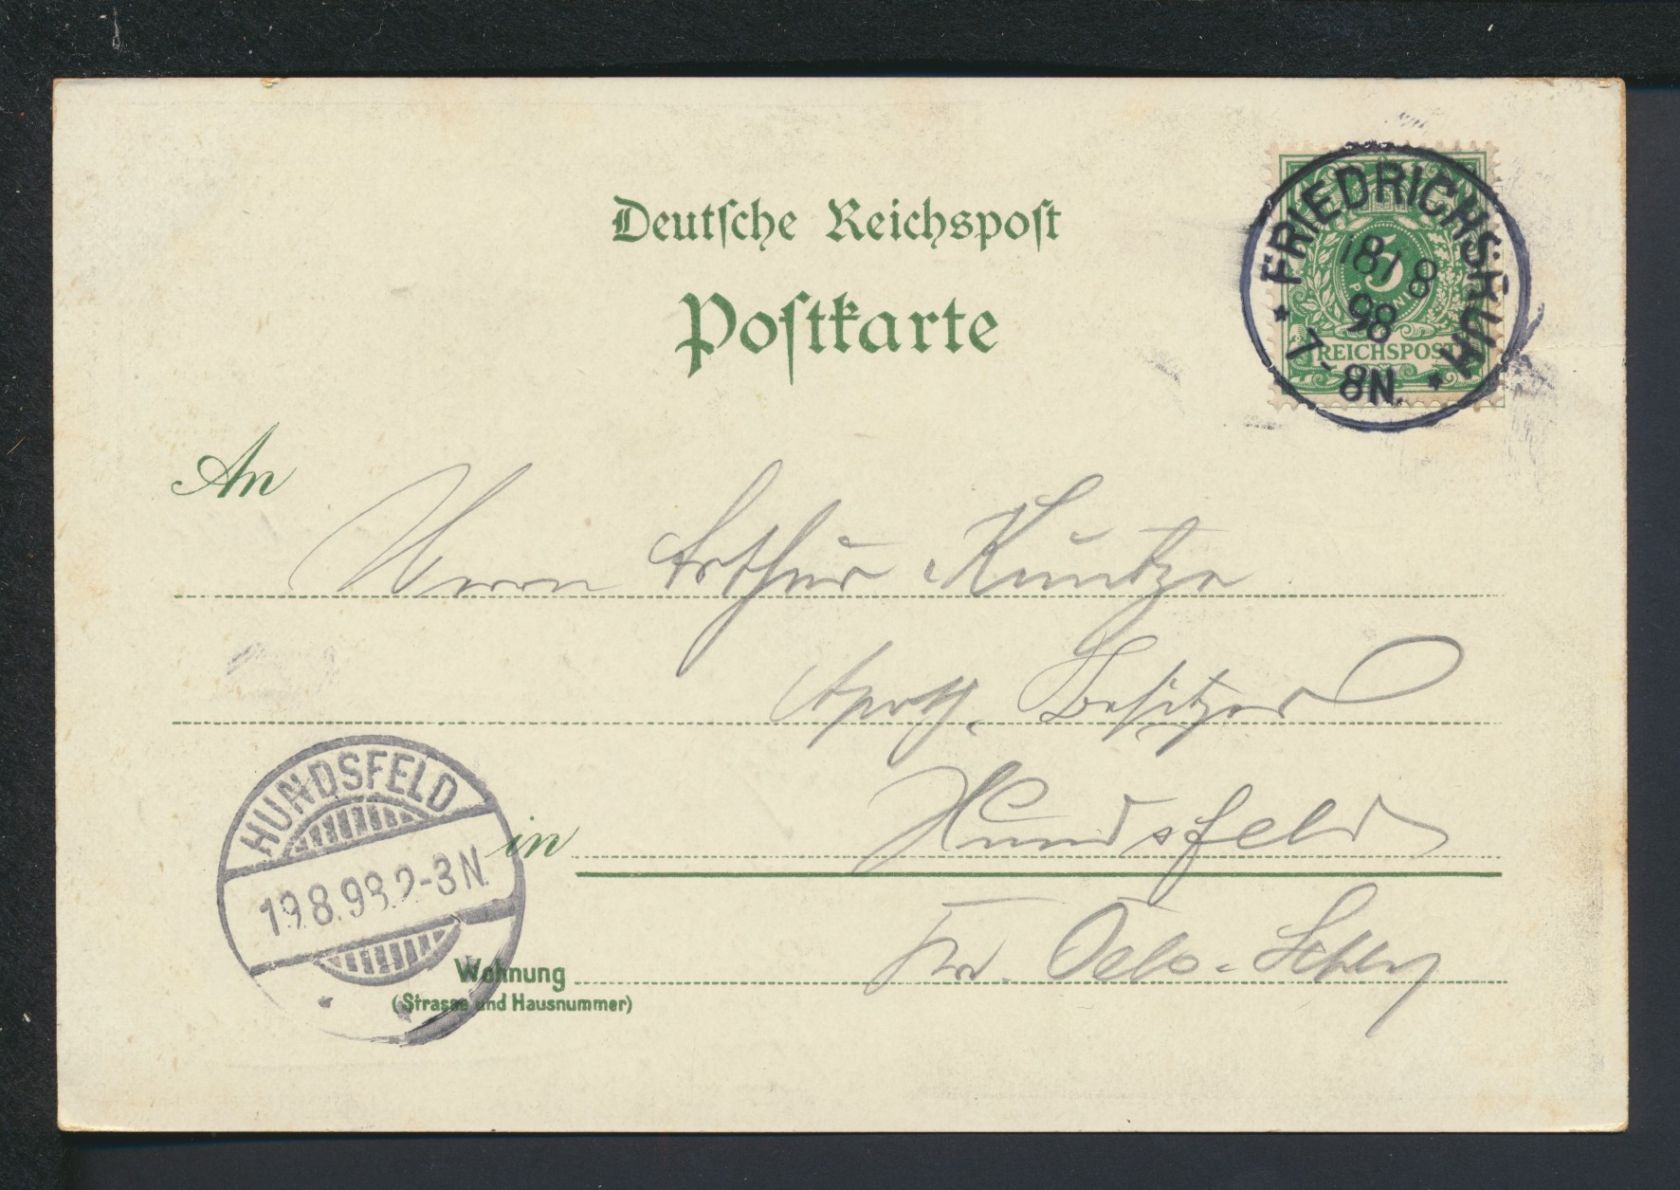 Deutsche Reichspost
Postkarte
FRIEDRICHSRUH
18/8
98
7-8N.
5
PFENNIG
REICHSPOST
An
Herrn Arthur Kuntze
Apoth. Besitzer
HUNDSFELD
19.8.98.2-3N.
in Hundsfeld
Wohnung
(Strasse und Hausnummer)
Kr. Oels-Schles